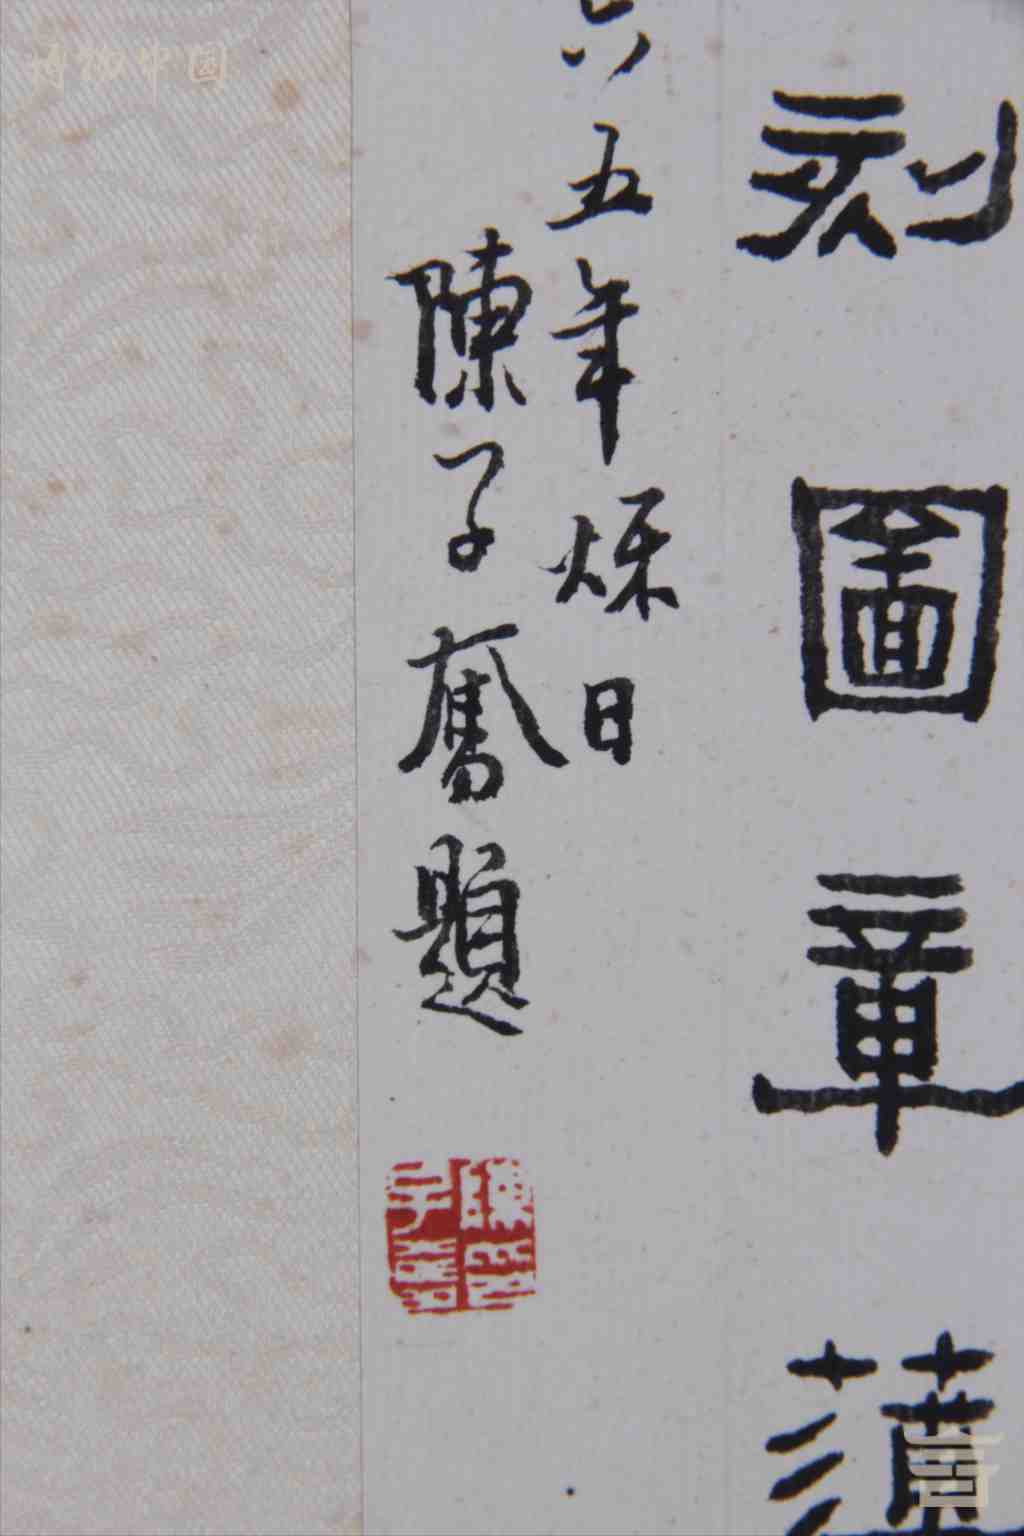 刻圖章薄
六五年烁日
陳子奮題
陳印子奮
博物中國